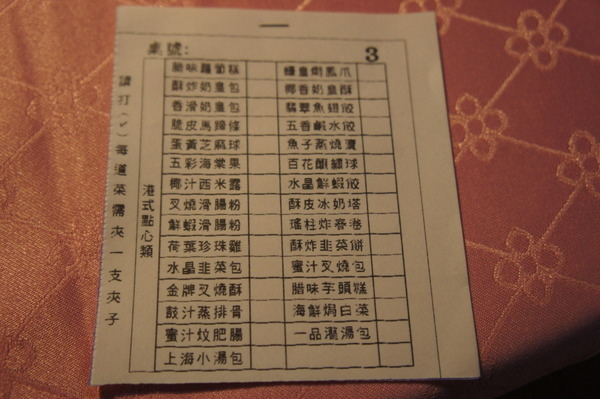 桌號:
3
請打(✓)每道菜需夾一支夾子
港式點心類
臘味蘿蔔糕
酥炸奶皇包
香滑奶皇包
脆皮馬蹄條
蛋黃芝麻球
五彩海棠果
椰汁西米露
叉燒滑腸粉
鮮蝦滑腸粉
荷葉珍珠雞
水晶韭菜包
金牌叉燒酥
鼓汁蒸排骨
蜜汁炆肥腸
上海小湯包
椰香奶皇酥
翡翠魚翅餃
五香鹹水餃
魚子蒸燒賣
百花釀
水晶鮮蝦餃
酥皮冰奶塔
瑤柱炸春卷
酥炸韭菜餅
蜜汁叉燒包
腊味芋頭糕
海鮮焗白菜
一品灌湯包